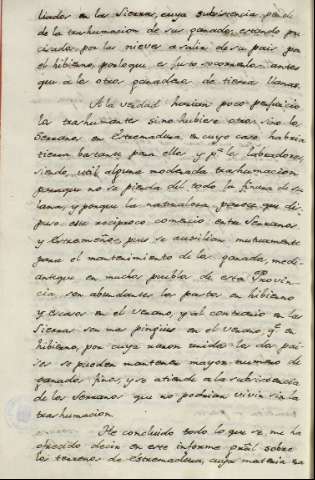 tuados en las Sierras, cuya subsistencia pende
de la trashumacion de sus ganados, estando pre
cisados por las nieves a salir de su pais por
el hibierno, por lo que es justo socorrerlos antes
que à los otros ganaderos de tierras llanas.
A la verdad harian poco perjuicio
los trashumantes si no hubiere otros sino los
Serranos en Estremadura, en cuyo caso habria
tierra bastante para ellos y p.ª los labradores,
siendo util alguna moderada trashumacion
porque no se pierda del todo la finura de las
lanas, y porque la naturaleza parece que dis
puso este reciproco comercio entre Serranos
y Estremeños, pues se ausilian mutuamente
para el mantenimiento de los ganados, medi
ante que en muchos pueblos de esta Provin
cia son abundantes los pastos en hibierno
y escasos en el verano, y al contrario en las
Sierras son mas pingües en el verano, q.e en
hibierno, por cuya razon unidos los dos pai
ses se pueden mantener mayor numero de
ganados finos, y se atiende a la subsistencia
de los Serranos que no podrian vivir sin la
trashumacion.
He concluido todo lo que se me ha
ofrecido decir en este informe gral sobre
los terrenos de Estremadura, cuya materia es